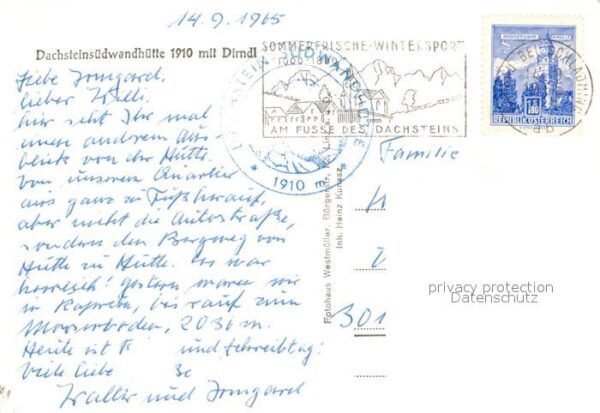 14.9.1965
Dachsteinsüdwandhütte 1910 mit Dirndl
Liebe Irmgard,
lieber Willi.
hier seht Ihr mal
einen anderen Aus-
blick von der Hütte.
Von unserem Quartier
aus ganz zu Fuß herauf,
aber nicht die Autostraße,
sondern den Bergweg von
Hütte zu Hütte. Es war
herrlich! Gestern waren wir
in Kaprun, bis rauf zum
Mooserboden, 2036 m.
Heute ist R und Schreibtag.
Viele liebe
Walter und Irmgard
SOMMERFRISCHE-WINTERSPORT
AM FUSSE DES DACHSTEINS
DACHSTEIN SÜDWANDHÜTTE
* 1910 m *
BEI SCHLADMING
S 1.80
REPUBLIK ÖSTERREICH
Familie
301
Fotohaus Westmüller, Linz, Bürgerstr.
Inh. Heinz Kunesz
privacy protection
Datenschutz